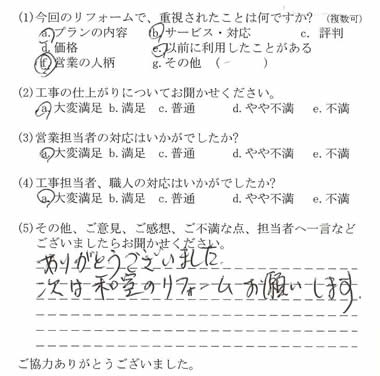 (1)今回のリフォームで、重視されたことは何ですか? (複数可)
a.プランの内容 b.サービス・対応 c. 評判
d.価格 e.以前に利用したことがある
f.営業の人柄 g.その他 (- )
(2)工事の仕上がりについてお聞かせください。
a.大変満足 b.満足 c.普通 d.やや不満 e.不満
(3)営業担当者の対応はいかがでしたか?
a.大変満足 b.満足 c.普通 d.やや不満 e.不満
(4)工事担当者、職人の対応はいかがでしたか?
a.大変満足 b.満足 c.普通 d.やや不満 e.不満
(5)その他、ご意見、ご感想、ご不満な点、担当者へ一言など
ございましたらお聞かせください。
ありがとうございました
次は和室のリフォームお願いします.
ご協力ありがとうございました。